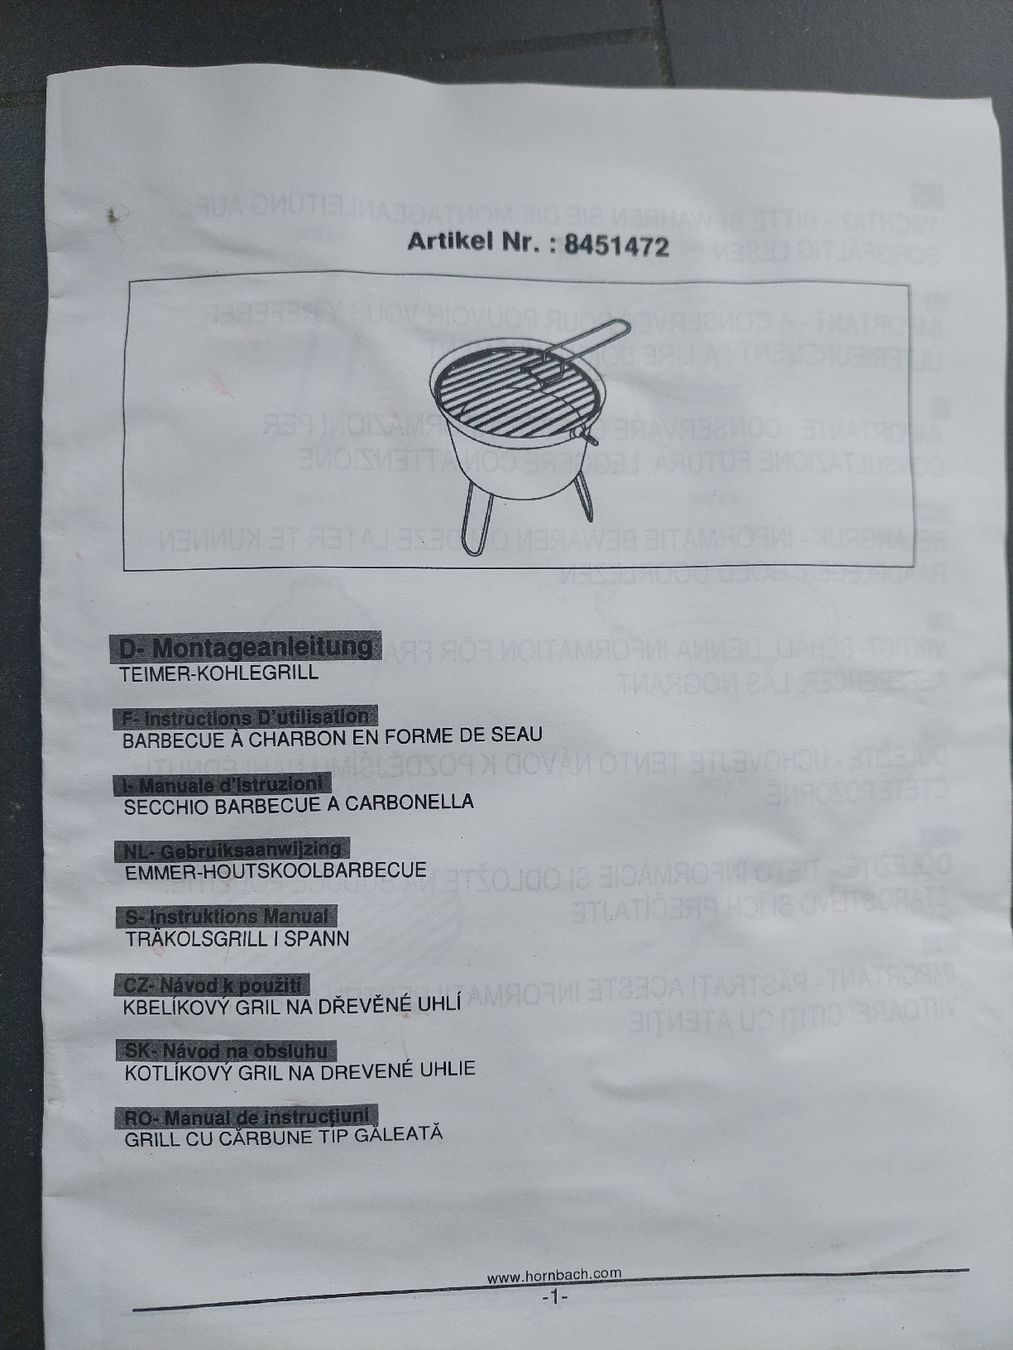 Artikel Nr. : 8451472
D- Montageanleitung
TEIMER-KOHLEGRILL
F- Instructions D'utilisation
BARBECUE À CHARBON EN FORME DE SEAU
I- Manuale d'Istruzioni
SECCHIO BARBECUE A CARBONELLA
NL- Gebruiksaanwijzing
EMMER-HOUTSKOOLBARBECUE
S- Instruktions Manual
TRÄKOLSGRILL I SPANN
CZ- Návod k použití
KBELÍKOVÝ GRIL NA DŘEVĚNÉ UHLÍ
SK- Návod na obsluhu
KOTLÍKOVÝ GRIL NA DREVENÉ UHLIE
RO- Manual de instrucțiuni
GRILL CU CĂRBUNE TIP GĂLEATĂ
www.hornbach.com
-1-